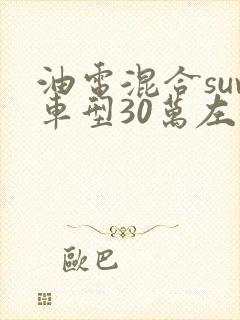 油電混合suv
車型30萬左
歐巴